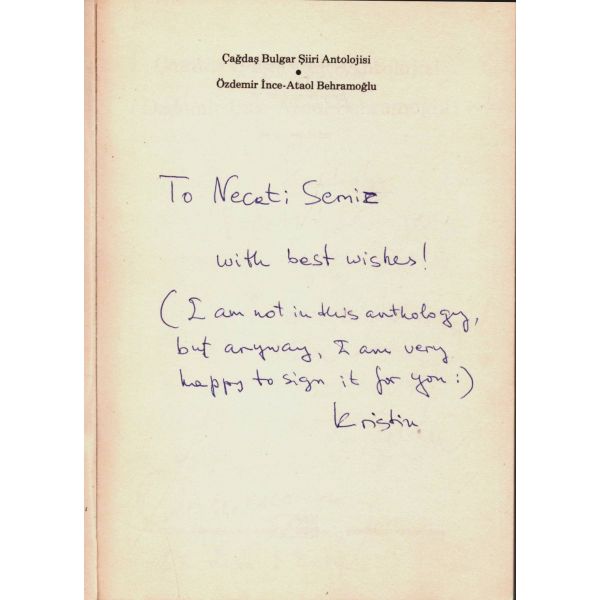 Çağdaş Bulgar Şiiri Antolojisi
•
Özdemir İnce-Ataol Behramoğlu
To Necati Semiz
with best wishes!
(I am not in this anthology,
but anyway, I am very
happy to sign it for you :)
Kristin